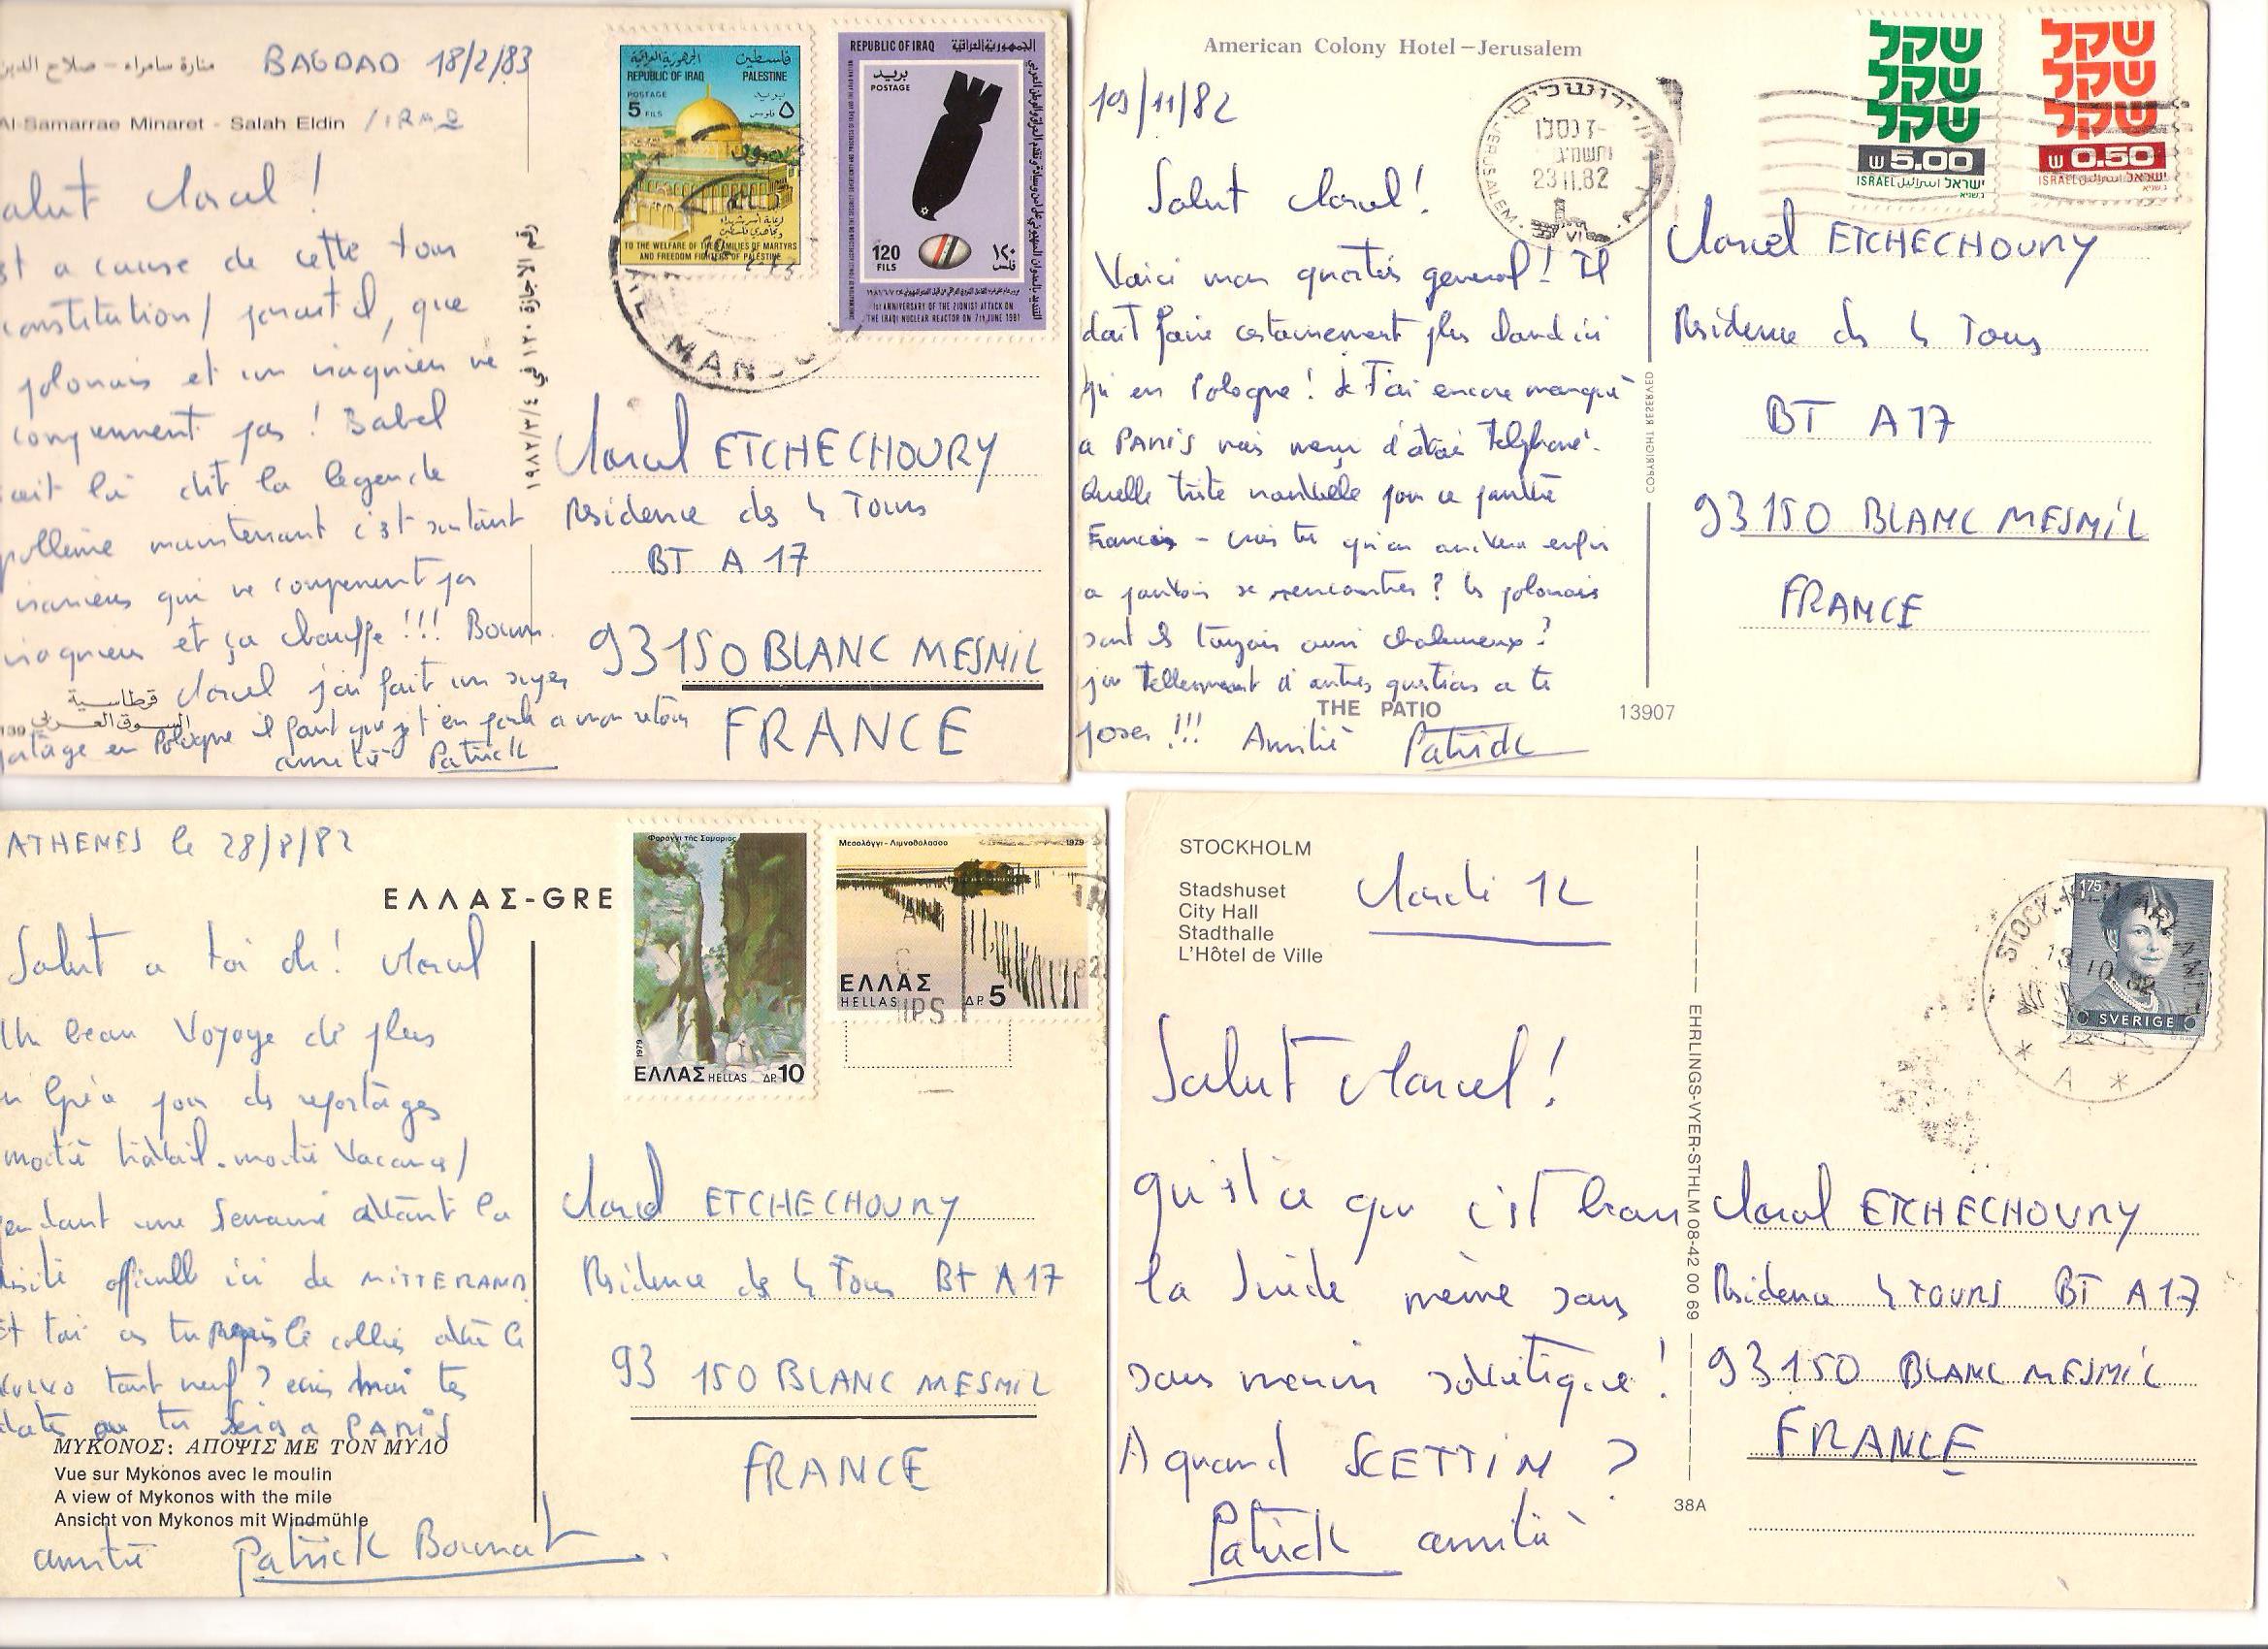 منارة سامراء - صلاح الدين
BAGDAD 18/2/83
Al-Samarrae Minaret - Salah Eldin / IRAQ
alut Marcel !
st a cause de cette tour
constitution) parait il, que
polonais et un iraquien ne
comprennent pas ! Babel
était là dit la legende
maintenant c'est
iraniens qui ne comprenent pas
iraquiens et ça chauffe !!! Bourn.
Marcel j'ai fait un super
portage en Pologne il faut que je t'en parle a mon retour
amitié Patrick
قرطاسية
السوق العربي
139
رقم الاجازة ١٢٠ في ١٩٨٢/٣/٤
الجمهورية العراقية فلسطين
REPUBLIC OF IRAQ PALESTINE
POSTAGE بريد
5 FILS ٥ فلوس
TO THE WELFARE OF THE FAMILIES OF MARTYRS
AND FREEDOM FIGHTERS OF PALESTINE
REPUBLIC OF IRAQ الجمهورية العراقية
بريد
POSTAGE
120 FILS ١٢٠ فلس
1st ANNIVERSARY OF THE ZIONIST ATTACK ON
THE IRAQI NUCLEAR REACTOR ON 7th JUNE 1981
Marcel ETCHECHOURY
Residence des 4 Tours
BT A 17
93150 BLANC MESNIL
FRANCE
American Colony Hotel – Jerusalem
19/11/82
Salut Marcel !
Voici mon quartier general ! Il
doit faire certainement plus chaud ici
qu'en Pologne ! Je t'ai encore manqué
a PARIS mais merci d'avoir telephoné.
Quelle triste nouvelle pour ce pauvre
Francis - crois tu qu'on arrivera enfin
a pouvoir se rencontrer ? les polonais
sont ils toujours aussi chaleureux ?
j'ai tellement d'autres questions a te
poser !!! Amitié Patrick
THE PATIO
13907
COPYRIGHT RESERVED
ירושלים
JERUSALEM
23.11.82
VI
שקל
שקל
שקל
5.00
ישראל اسرائيل ISRAEL
שקל
שקל
שקל
0.50
ישראל اسرائيل ISRAEL
Marcel ETCHECHOURY
Residence des 4 Tours
BT A17
93150 BLANC MESNIL
FRANCE
ATHENES le 28/8/82
ΕΛΛΑΣ-GRE
Salut a toi oh ! Marcel
Un beau voyage de plus
n Grèce pour des reportages
moitié travail - moitié vacances)
pendant une semaine avant la
visite officielle ici de MITTERAND
Et toi as tu repris le collier avec le
VOLVO tout neuf ? ecris moi tes
dates ou tu seras a PARIS
ΜΥΚΟΝΟΣ: ΑΠΟΨΙΣ ΜΕ ΤΟΝ ΜΥΛΟ
Vue sur Mykonos avec le moulin
A view of Mykonos with the mile
Ansicht von Mykonos mit Windmühle
amitié Patrick Bournat
Φαράγγι τῆς Σαμαριᾶς
1979
ΕΛΛΑΣ HELLAS ΔΡ. 10
Μεσολόγγι - Λιμνοθάλασσα 1979
ΕΛΛΑΣ
HELLAS ΔΡ. 5
Marcel ETCHECHOURY
Residence des 4 Tours Bt A 17
93 150 BLANC MESNIL
FRANCE
STOCKHOLM
Stadshuset
City Hall
Stadthalle
L'Hôtel de Ville
Mardi 12
Salut Marcel !
qu'est ce que c'est beau
la Suède même sans
sous marin soviétique !
A quand SCETTIN ?
Patrick amitié
EHRLINGS-VYER-STHLM 08-42 00 69
38A
STOCKHOLM
13 10 82
A
175
SVERIGE
Marcel ETCHECHOURY
Residence 4 TOURS BT A 17
93150 BLANC MESNIL
FRANCE